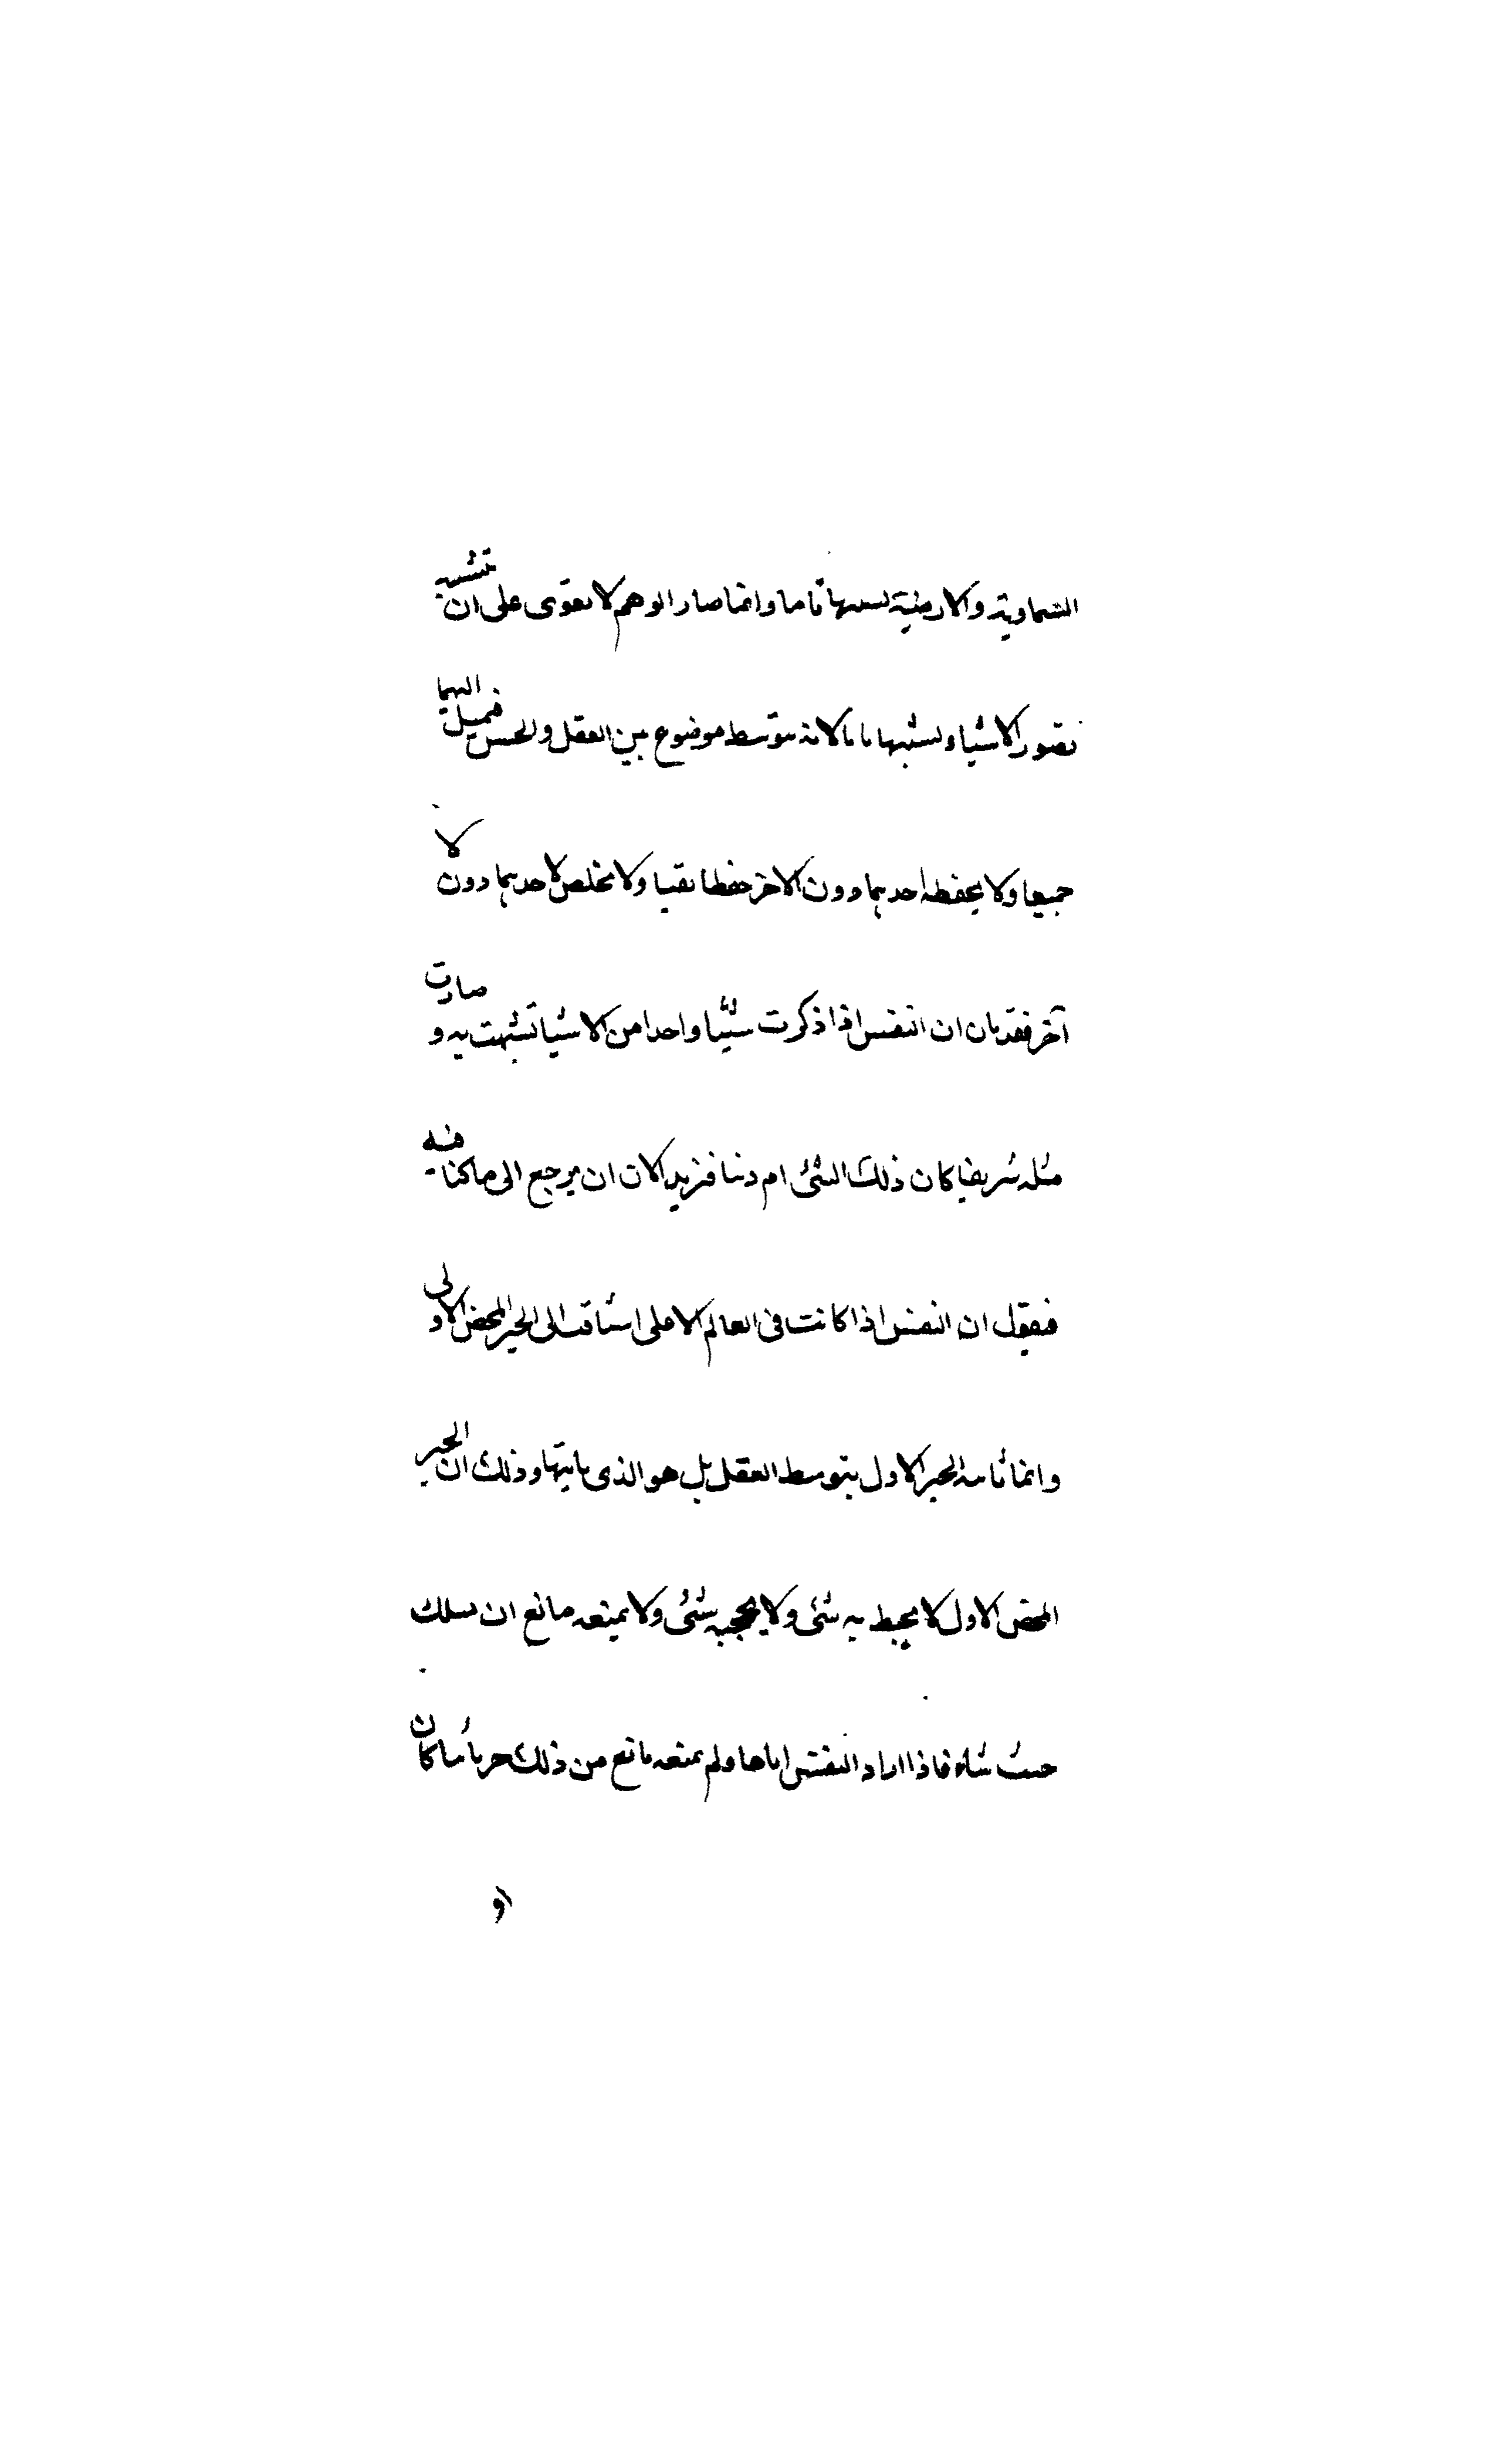 السماوية والارضية تشبها تاما وانما صار الوهم لا يقوى على ان يتشبه
بصور الاشياء تشبها تاما لانه متوسط موضوع بين العقل والحس فيميل اليهما
جميعا ولا يحفظ احدهما دون الاخر حفظا نقيا ولا يخلص لاحدهما دون الا
آخر فقد بان ان النفس اذا ذكرت شيئا واحدا من الاشيا تشبهت به و صارت
مثله شريفا كان ذلك الشئ ام دنيا فنريد الان ان نرجع الى ما كنا فيه
فنقول ان النفس اذا كانت فى العالم الاعلى اشتاقت الى الخير المحض الاولى
وانما تأتيه الخير الاول بتوسط العقل بل هو الذى ياتيها وذلك ان الخير
المحض الاول لا يحيط به شئ ولا يحجبه شئ ولا يمنعه مانع ان يسلك
حيث شاء فاذا اراد النفس اتاها ولم يمنعه مانع من ذلك جرمانيا كان
او